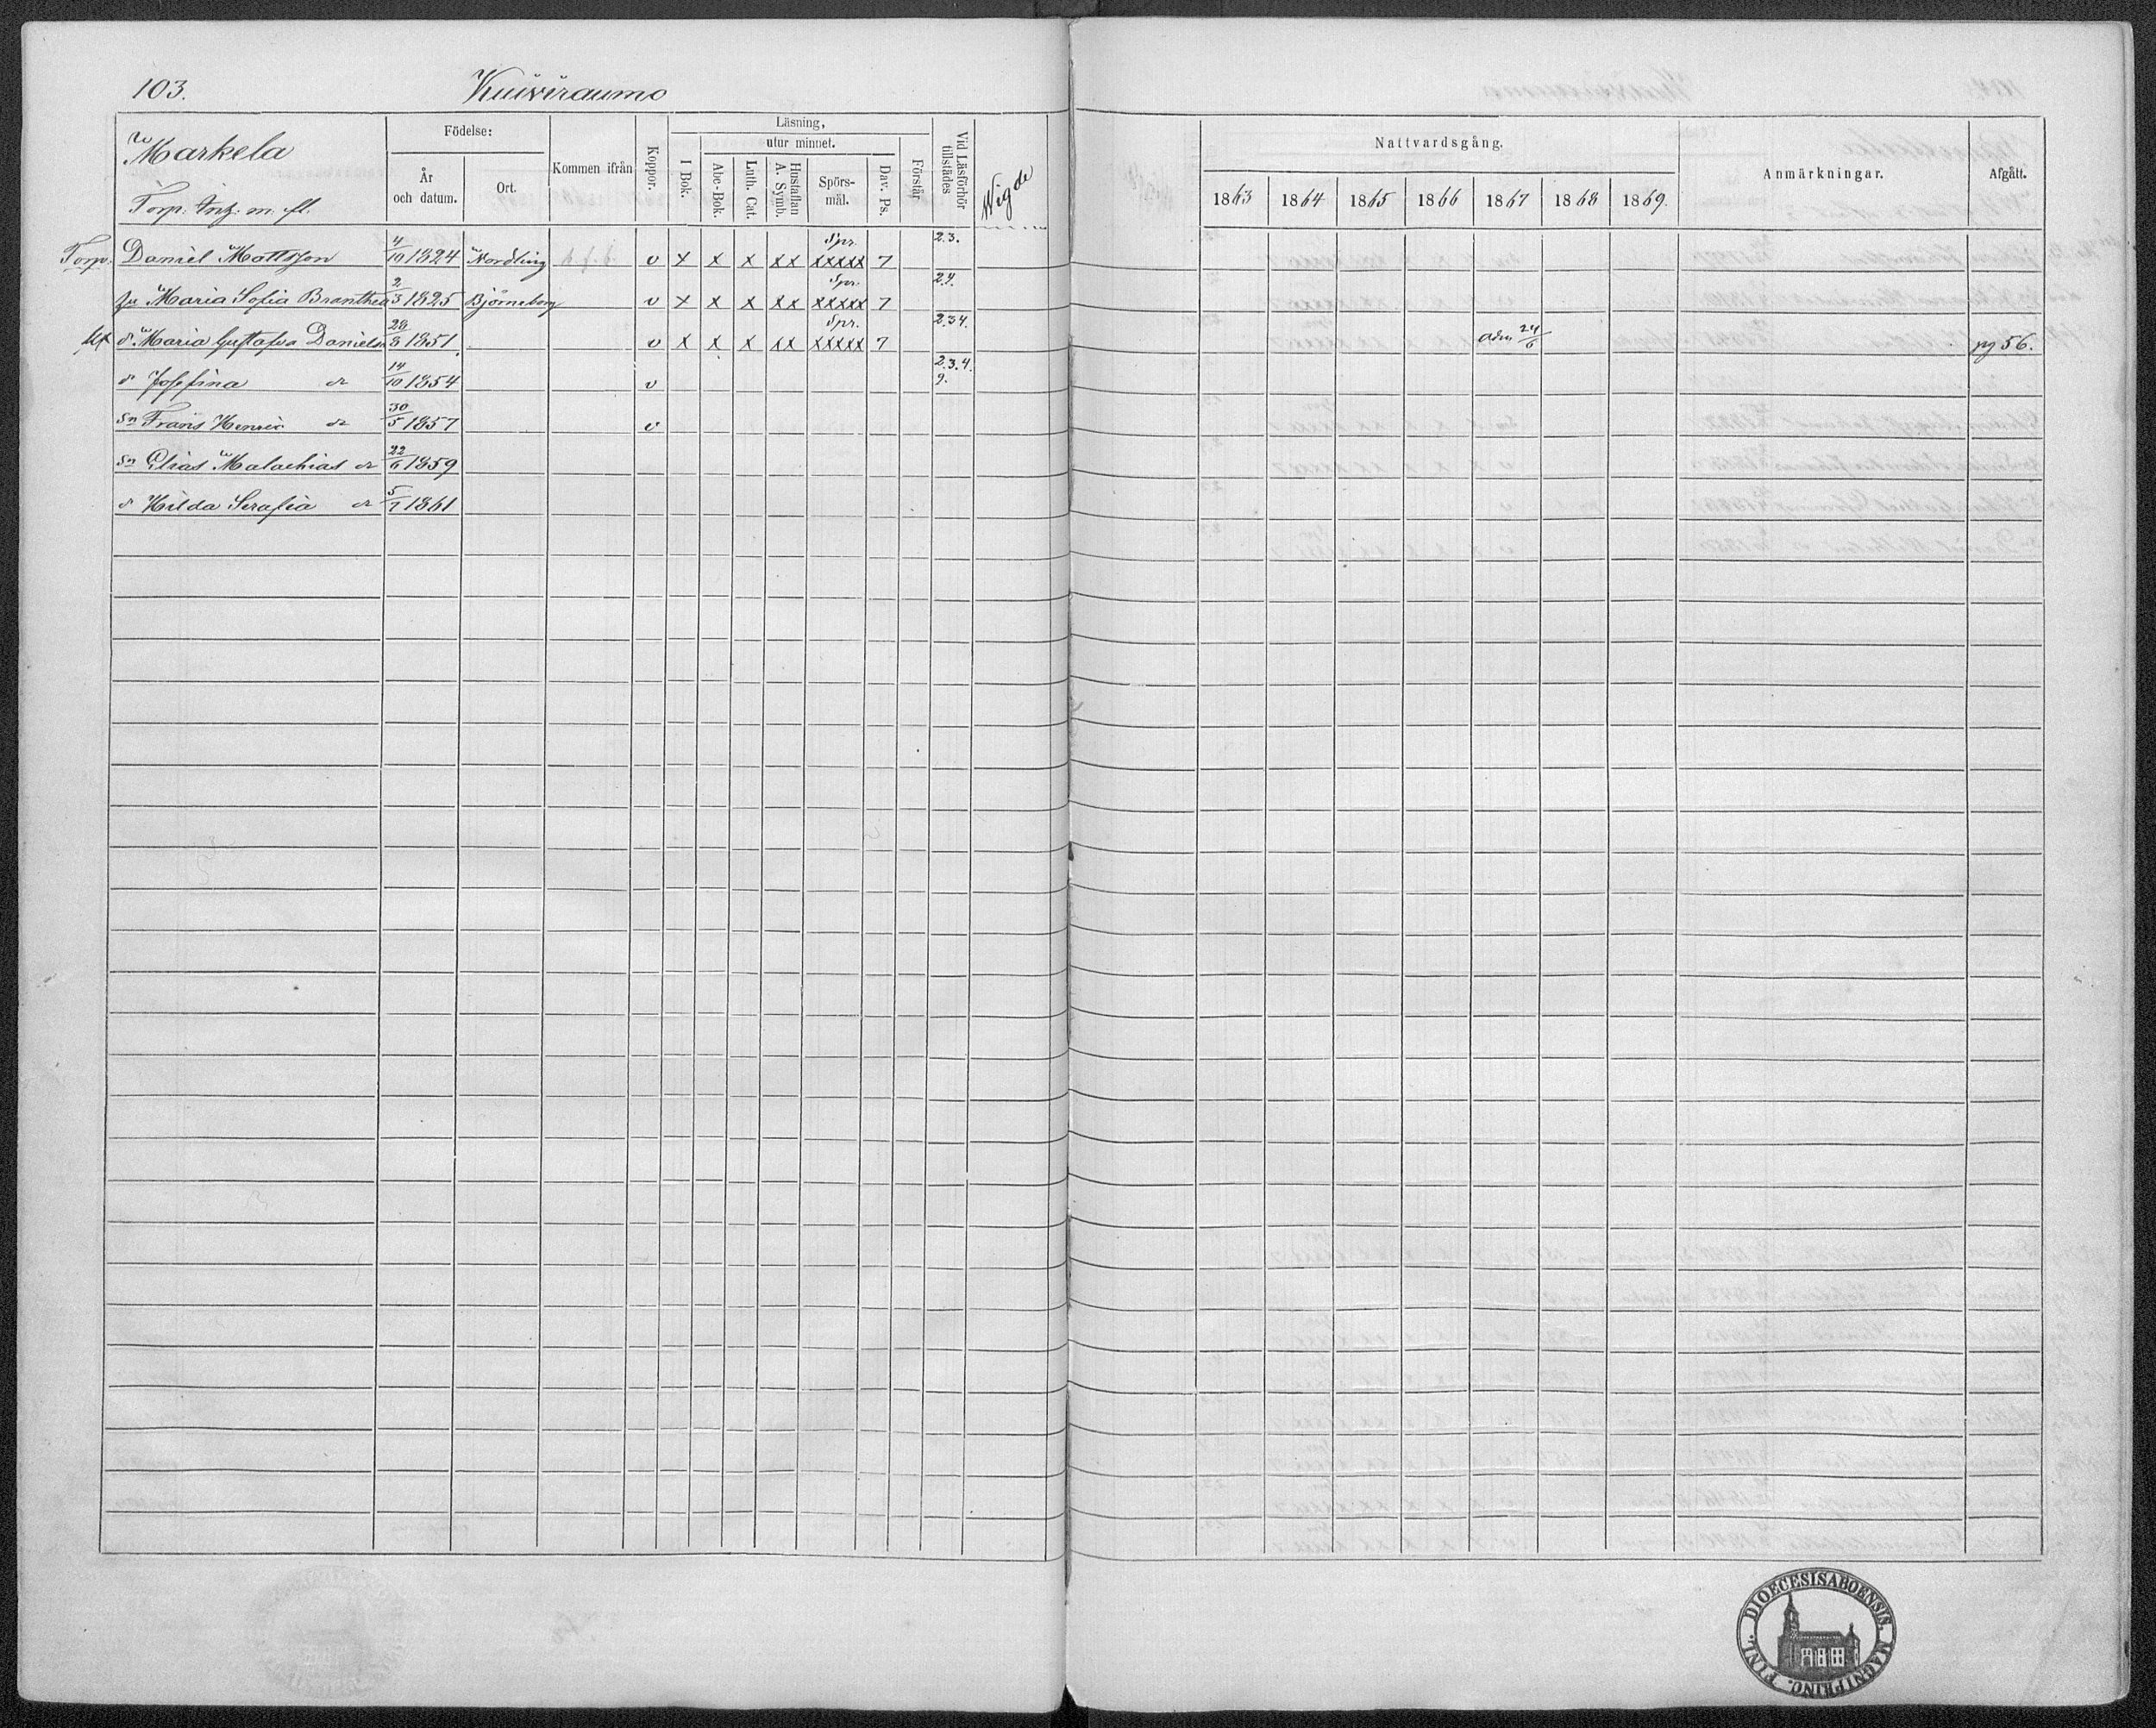 103. Kuiviraumo
Markela
Torp. Intg. m. fl.
Födelse:
År och datum.
Ort.
Kommen ifrån
Koppor.
Läsning,
I Bok.
utur minnet.
Abc-Bok.
Luth. Cat.
Hustaflan A. Symb.
Spörs-mål.
Dav. Ps.
Förstår
Vid Läsförhör tillstädes
Wigde
Nattvardsgång.
1863 1864 1865 1866 1867 1868 1869.
Anmärkningar.
Afgått.
Torp. Daniel Mattsson 4/10 1824 Nordling v x x x xx Spr. xxxxx 7 2.3.
Maria Sofia Branthea 2/3 1825 Björneborg v x x x xx Spr. xxxxx 7 2.4.
d Maria Gustafva Daniels 28/3 1851 v x x x xx Spr. xxxxx 7 2.3.4. adm 24/6 pg 56.
d Josefina do 14/10 1854 v 2.3.4. 9.
sn Frans Henric do 30/5 1857 v
sn Elias Malachias do 22/6 1859
d Hilda Serafia do 5/7 1861
FINL. DIOECESIS ABOENSIS MAGNI PRINC.